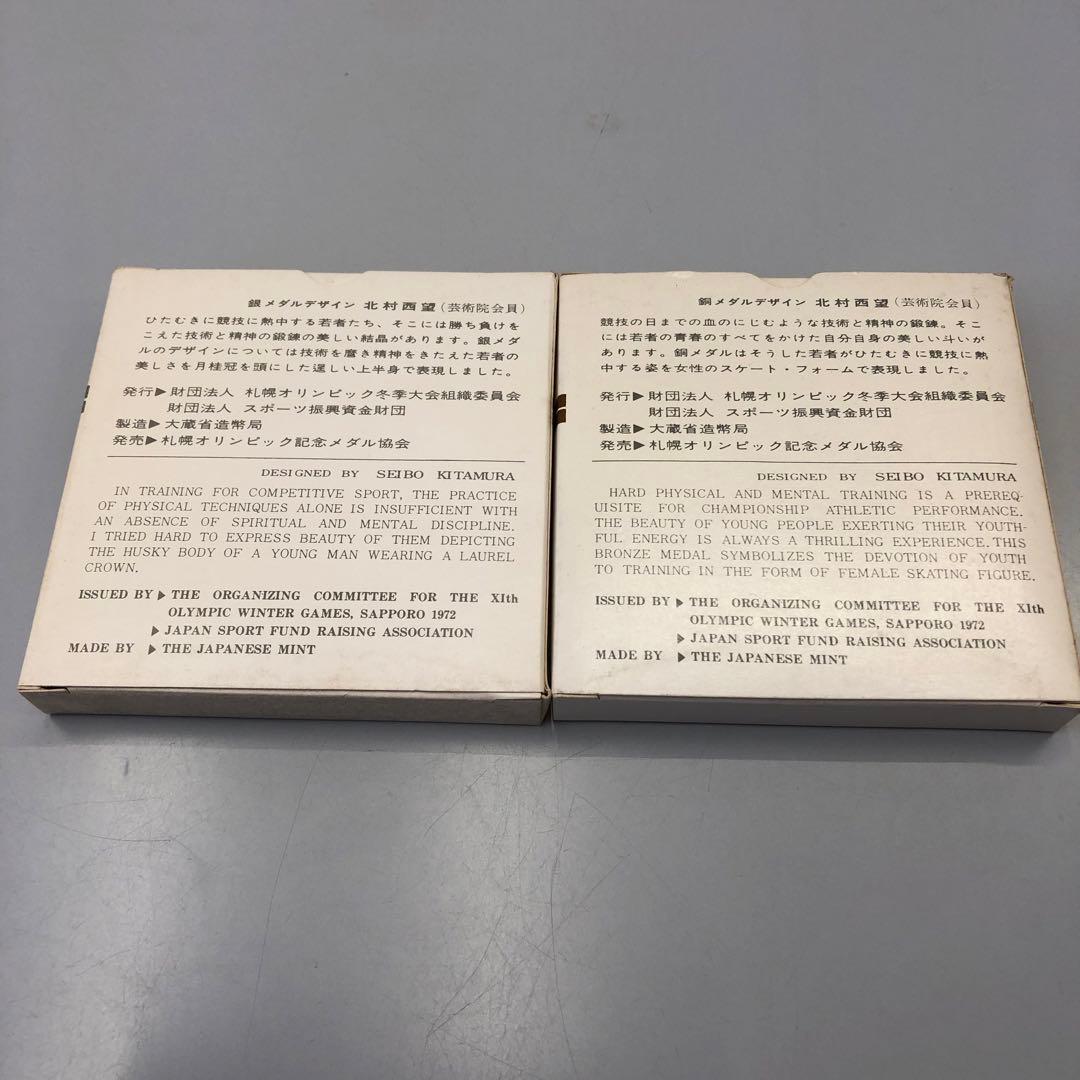 銀メダルデザイン 北村西望(芸術院会員)
ひたむきに競技に熱中する若者たち、そこには勝ち負けを
こえた技術と精神の鍛錬の美しい結晶があります。銀メダ
ルのデザインについては技術を磨き精神をきたえた若者の
美しさを月桂冠を頭にした逞しい上半身で表現しました。
発行▶財団法人 札幌オリンピック冬季大会組織委員会
財団法人 スポーツ振興資金財団
製造▶大蔵省造幣局
発売▶札幌オリンピック記念メダル協会
DESIGNED BY SEIBO KITAMURA
IN TRAINING FOR COMPETITIVE SPORT, THE PRACTICE
OF PHYSICAL TECHNIQUES ALONE IS INSUFFICIENT WITH
AN ABSENCE OF SPIRITUAL AND MENTAL DISCIPLINE.
I TRIED HARD TO EXPRESS BEAUTY OF THEM DEPICTING
THE HUSKY BODY OF A YOUNG MAN WEARING A LAUREL
CROWN.
ISSUED BY ▶ THE ORGANIZING COMMITTEE FOR THE XIth
OLYMPIC WINTER GAMES, SAPPORO 1972
▶ JAPAN SPORT FUND RAISING ASSOCIATION
MADE BY ▶ THE JAPANESE MINT
銅メダルデザイン 北村西望(芸術院会員)
競技の日までの血のにじむような技術と精神の鍛錬。そこ
には若者の青春のすべてをかけた自分自身の美しい斗いが
あります。銅メダルはそうした若者がひたむきに競技に熱
中する姿を女性のスケート・フォームで表現しました。
発行▶財団法人 札幌オリンピック冬季大会組織委員会
財団法人 スポーツ振興資金財団
製造▶大蔵省造幣局
発売▶札幌オリンピック記念メダル協会
DESIGNED BY SEIBO KITAMURA
HARD PHYSICAL AND MENTAL TRAINING IS A PREREQ-
UISITE FOR CHAMPIONSHIP ATHLETIC PERFORMANCE.
THE BEAUTY OF YOUNG PEOPLE EXERTING THEIR YOUTH-
FUL ENERGY IS ALWAYS A THRILLING EXPERIENCE. THIS
BRONZE MEDAL SYMBOLIZES THE DEVOTION OF YOUTH
TO TRAINING IN THE FORM OF FEMALE SKATING FIGURE.
ISSUED BY ▶ THE ORGANIZING COMMITTEE FOR THE XIth
OLYMPIC WINTER GAMES, SAPPORO 1972
▶ JAPAN SPORT FUND RAISING ASSOCIATION
MADE BY ▶ THE JAPANESE MINT